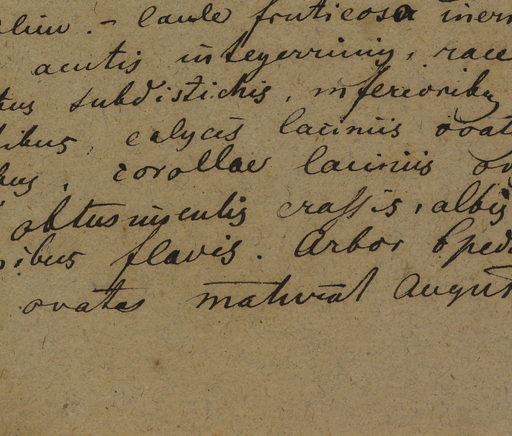 . - Caule fruticosa
acutis integerrimis, race
subdistichis, inferioribus
calycis laciniis ovat
corollae laciniis
obtusiusculis crassis, albis
flavis. Arbor 6ped
ovatas maturat August